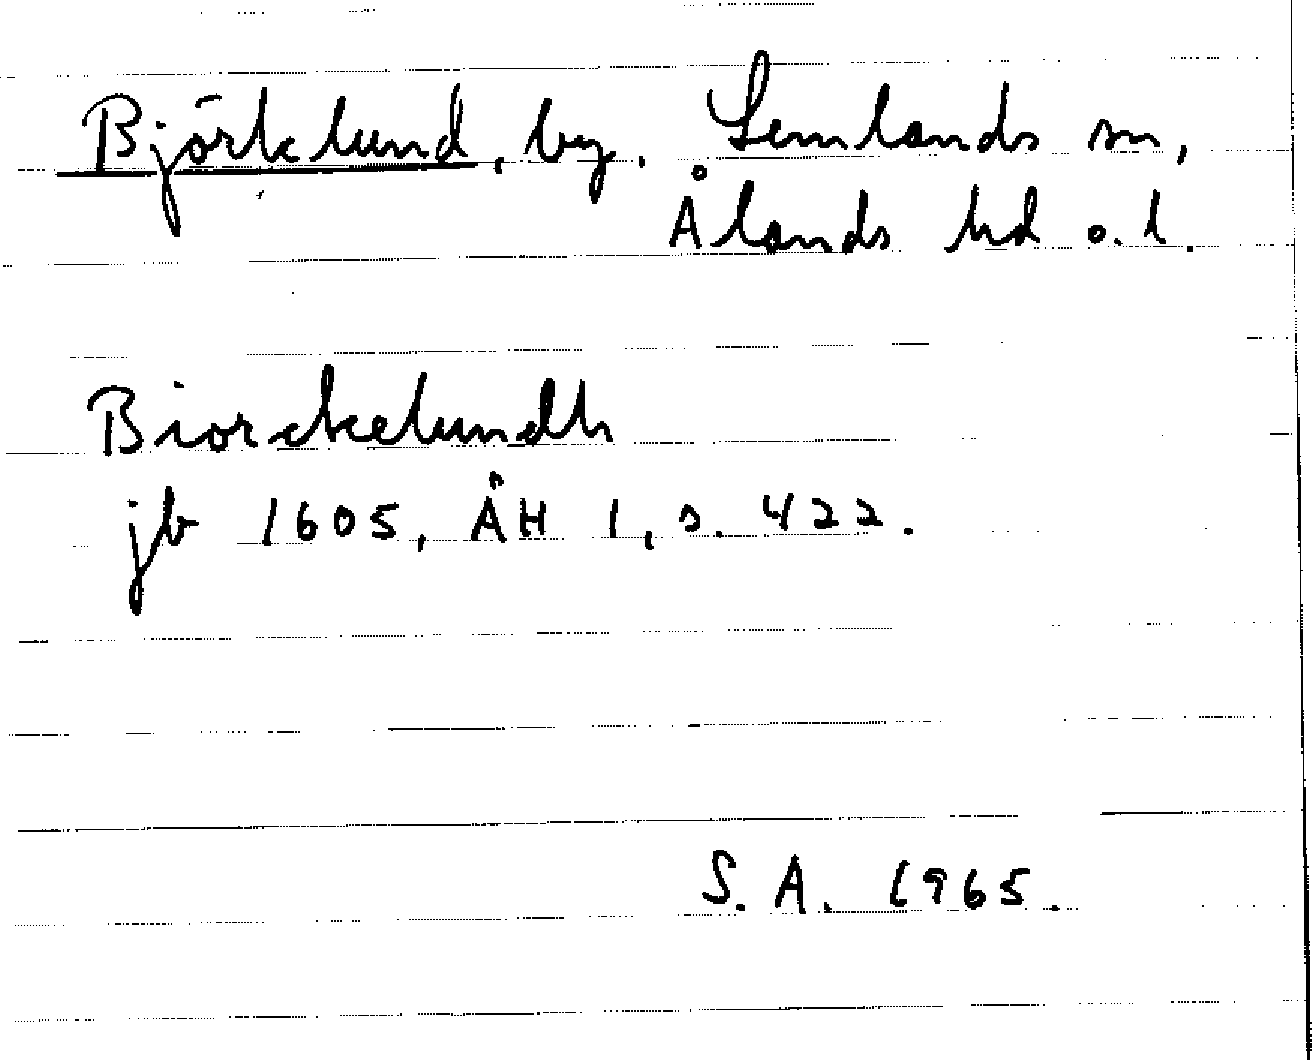 Björklund, by. Lemlands sn,
Ålands hd o. l.
Biorckelundh
jb 1605, ÅH 1, s. 422.
S. A. 1965.